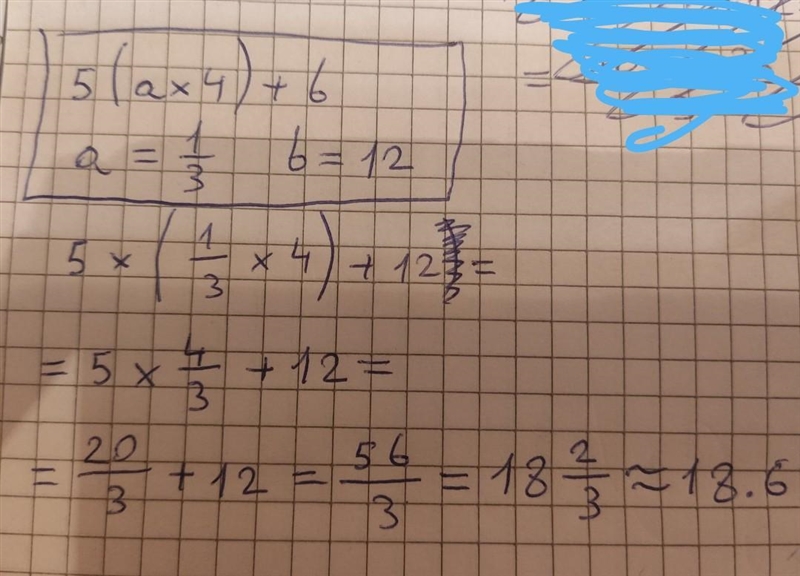 5(a×4)+b
a = 1/3 b = 12
=
5 × (1/3 × 4) + 12 =
= 5 × 4/3 + 12 =
= 20/3 + 12 = 56/3 = 18 2/3 ≈ 18.6